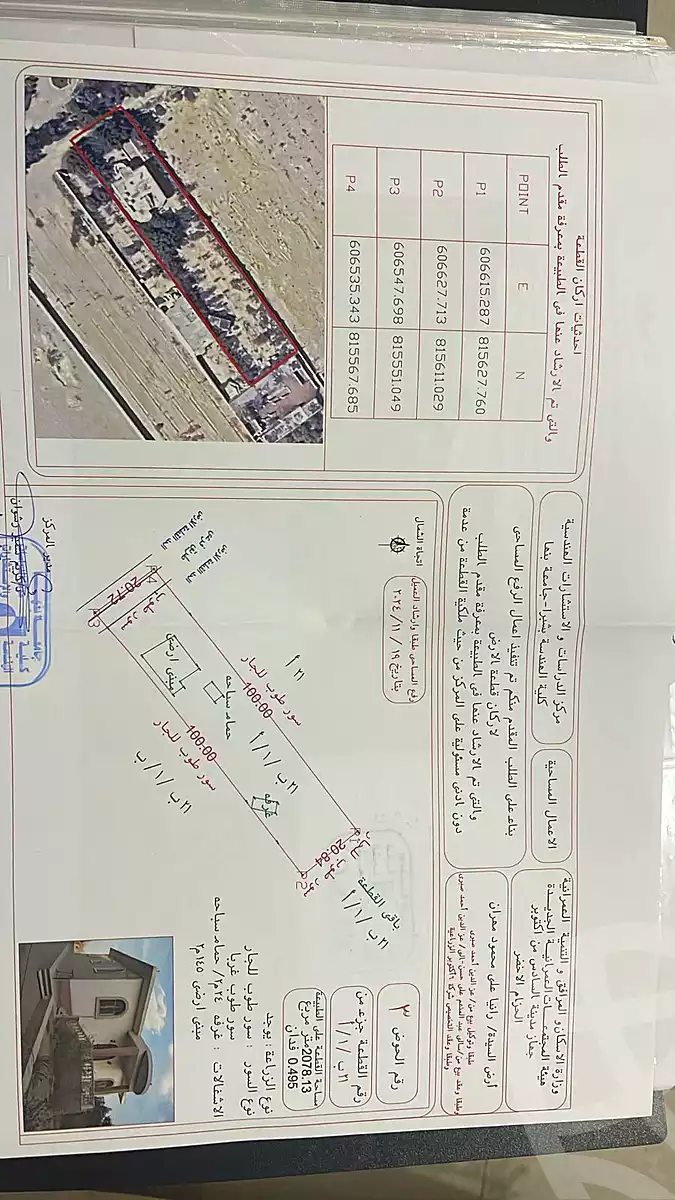 وزارة الاسكان و المرافق و التنمية العمرانية
هيئة المجتمعات العمرانية الجديدة
جهاز مدينة السادس من أكتوبر
الحزام الاخضر
الاعمال المساحية
مركز الدراسات و الاستشارات الهندسية
كلية الهندسة بشبرا-جامعة بنها
أرض السيدة/ رانيا على محمود مهران
بناء على الطلب المقدم منكم تم تنفيذ اعمال الرفع المساحى
لاركان قطعة الارض
والتى تم الارشاد عنها فى الطبيعة بمعرفة مقدم الطلب
دون ادنى مسئولية على المركز من حيث ملكية القطعة من عدمة
رقم الحوض ٣
رقم القطعة جزء من
٢١ب /١/ أ
مساحة القطعة على الطبيعة
2078.13 متر مربع
0.495 فدان
نوع الزراعة : يوجد
نوع السور : سور طوب للجار
سور طوب غربا
الاشغالات : غرفه ٢٤م٢/ حمام سباحه
مبنى ارضى ١٤٥م٢
رفع المساحى طبقا وارشاد العميل
بتاريخ ١٩ /١١/ ٢٠٢٤
اتجاة الشمال
٢١ أ
سور طوب للجار
100.00
٢١ ب /١/ أ
حمام سباحه
مبنى ارضى
غرفه
100.00
سور طوب للجار
٢١ ب /١/ ب
20.72
20.84
باقى القطعة
٢١ ب /١/ أ
مدير المركز
احدثيات اركان القطعة
والتى تم الارشاد عنها فى الطبيعة بمعرفة مقدم الطلب
POINT E N
P1 606615.287 815627.760
P2 606627.713 815611.029
P3 606547.698 815551.049
P4 606535.343 815567.685